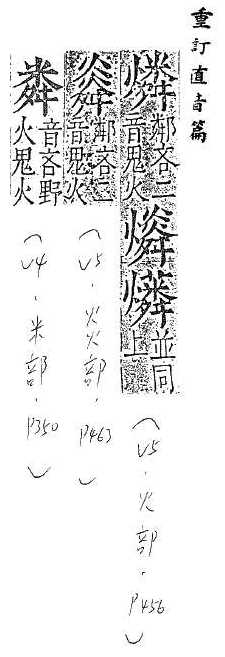 重訂直音篇
燐鄰吝二音鬼火並同上
（V5．火部．P456）
㷠鄰吝二音鬼火
（V5．炎部．P463）
粦音吝野火鬼火
（V4．米部．P350）